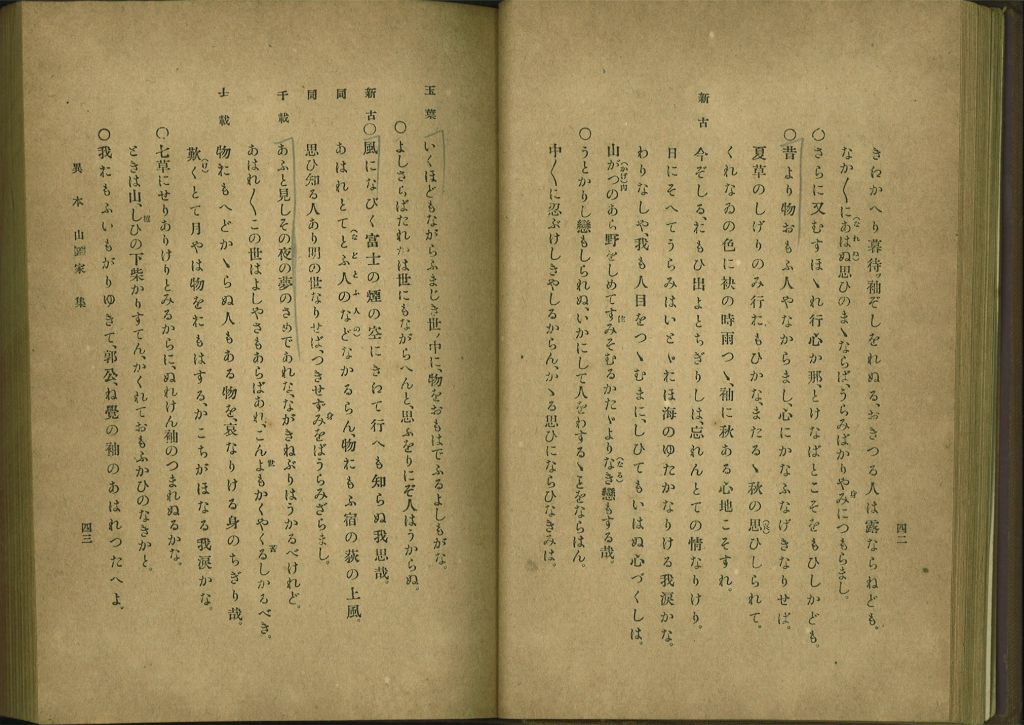 四二
きわかへり暮待ッ袖ぞしをれぬる、おきつる人は露ならねども。
なか〱にあはぬ思ひのまゝならば、うらみばかりやみにつもらまし。
(なれぬ)
身
〇さらに又むすほゝれ行心か那、とけなばとこそをもひしかども。
〇昔より物おもふ人やなからまし、心にかなふなげきなりせば。
夏草のしげりのみ行たもひかな、またるゝ秋の思ひしられて。
くれなゐの色に袂の時雨つゝ、袖に秋ある心地こそすれ。
新古
今ぞしる、たもひ出よとちぎりしは、忘れんとての情なりけり。
日にそへてうらみはいとゞたほ海のゆたかなりける我淚かな。
わりなしや、我も人目をつゝむまに、しひてもいはぬ心づくしは。
山がつのあら野をしめてすみそむるかたゞよりなき戀もする哉。
(かげ)内
住
(なる)
〇うとかりし戀もしられぬ、いかにして人をわするゝことをならはん。
中〱に忍ぶけしきやしるからん、かゝる思ひにならひなきみは。
玉葉
いくほどもながらふまじき世ノ中に、物をおもはでふるよしもがな。
〇よしさらばたれかは世にもながらへんと、思ふをりにぞ人はうからぬ。
新古
〇風になびく富士の煙の空にきえて行へも知らぬ我思哉。
同
あはれとてとふ人のなどなかるらん、物たもふ宿の荻の上風。
(などとふ人の)
同
思ひ知る人あり明の世なりせば、つきせずみをばうらみざらまし。
身
千載
あふと見しその夜の夢のさめであれな、ながきねぶりはうかるべけれど。
あはれ〱この世はよしやさもあらばあれ、こんよもかくやくるしかるべき。
世
苦
物たもへどかゝらぬ人もある物を、哀なりける身のちぎり哉。
千載
歎くとて月やは物をたもはする、かこちがほなる我淚かな。
(け)
〇七草にせりありけりとみるからに、ぬれけん袖のつまれぬるかな。
ときは山、しひの下柴かりすてん、かくれておもふかひのなきかと。
椎
〇我たもふいもがりゆきて、郭公、ね覺の袖のあはれつたへよ。
異本山家集
四三